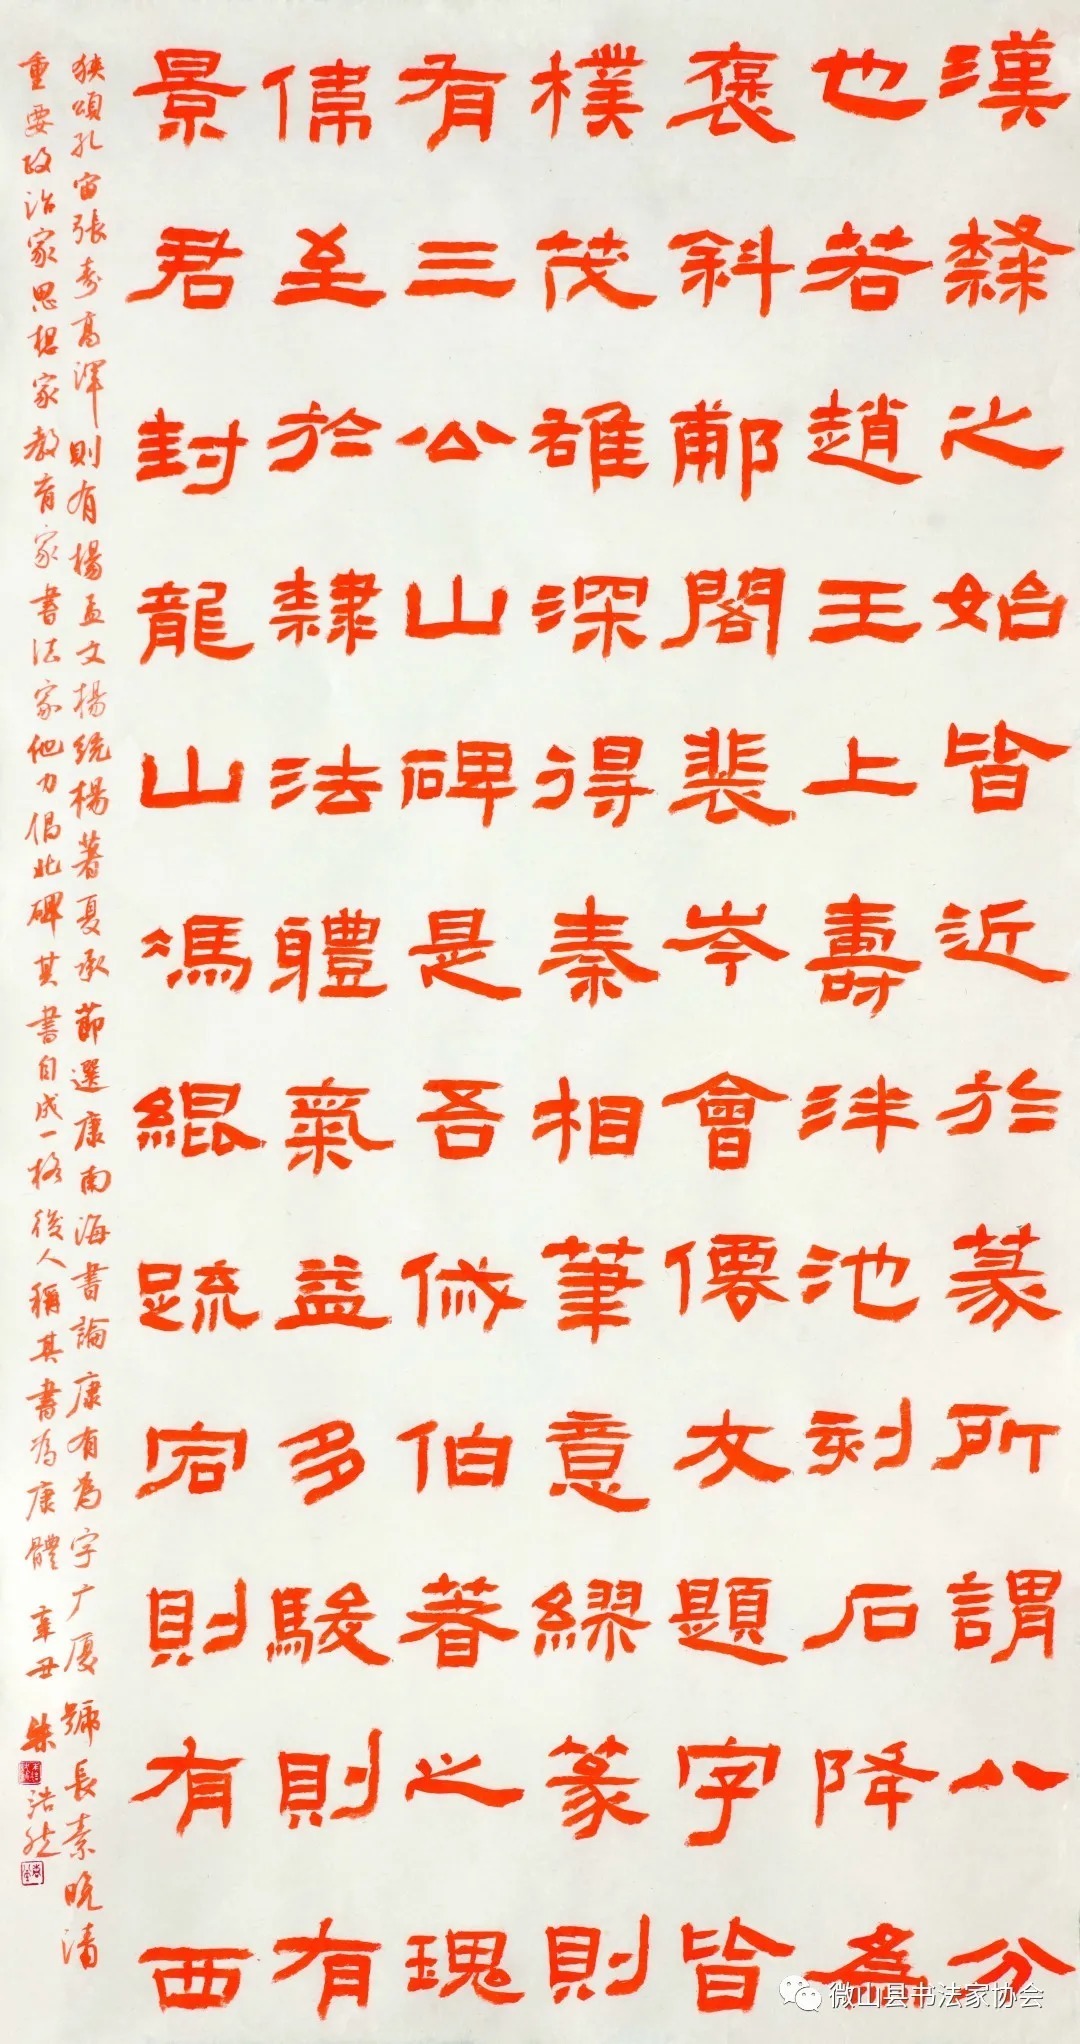 漢隸之始皆近於篆所謂八分
也若趙王上壽泮池刻石降為
褒斜郙閣裴岑會僊友題字皆
樸茂雄深得秦相筆意繆篆則
有三公山碑是吾伯著之瑰
偉至於隸法體氣益多駿則有
景君封龍山馮緄疏宕則有西
狹頌孔宙張壽高渾則有楊孟文楊統楊著夏承節選康南海書論康有為字广厦號長素晚清
重要政治家思想家教育家書法家他力倡北碑其書自成一格後人稱其書為康體 辛丑 朱浩然
微山县书法家协会